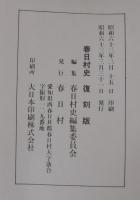 昭和六十三年三月十五日 印刷
昭和六十三年三月三十一日 発行
春日村史 復刻版
編集 春日村史編集委員会
発行 春日村
愛知県西春日井郡春日村大字落合
字振形一二九番地
印刷所 大日本印刷株式会社